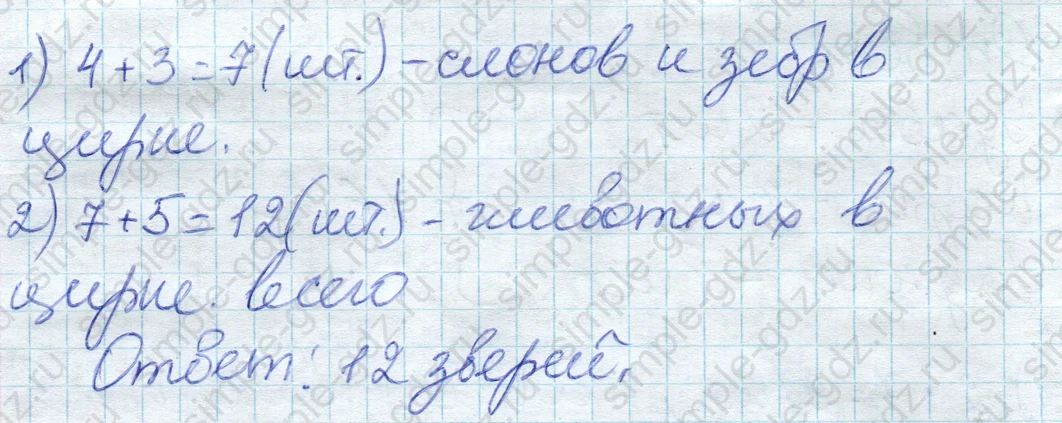 1) 4+3=7(шт.) - слонов и зебр в
цирке.
2) 7+5=12(шт.) - животных в
цирке. всего
Ответ: 12 зверей.